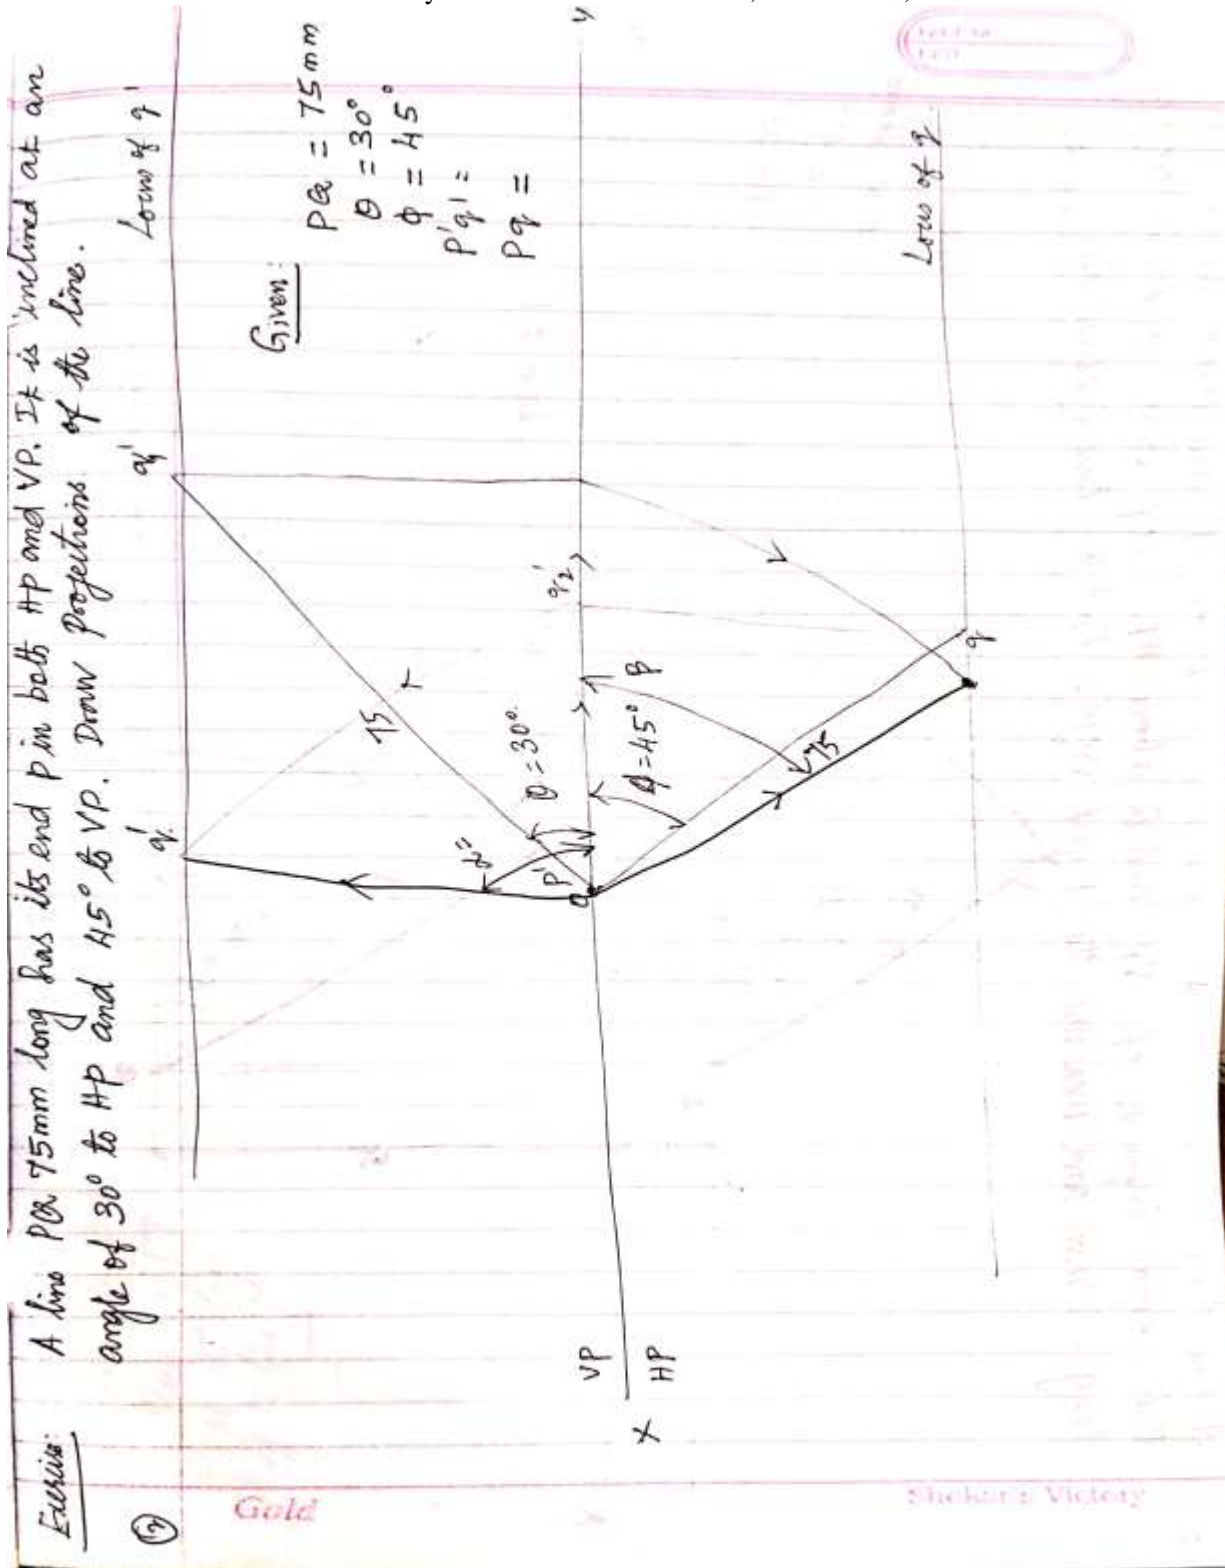 Exercise:
② A line PQ 75mm long has its end P in both HP and VP. It is inclined at an
angle of 30° to HP and 45° to VP. Draw projections of the line.
q'
q₁'
Locus of q'
Given:
PQ = 75mm
θ = 30°
ϕ = 45°
p'q' =
pq =
75
θ = 30°
p'
q₂'
X
VP
HP
y
β
ϕ = 45°
75
q
Locus of q
Gold
Shekar's Victory